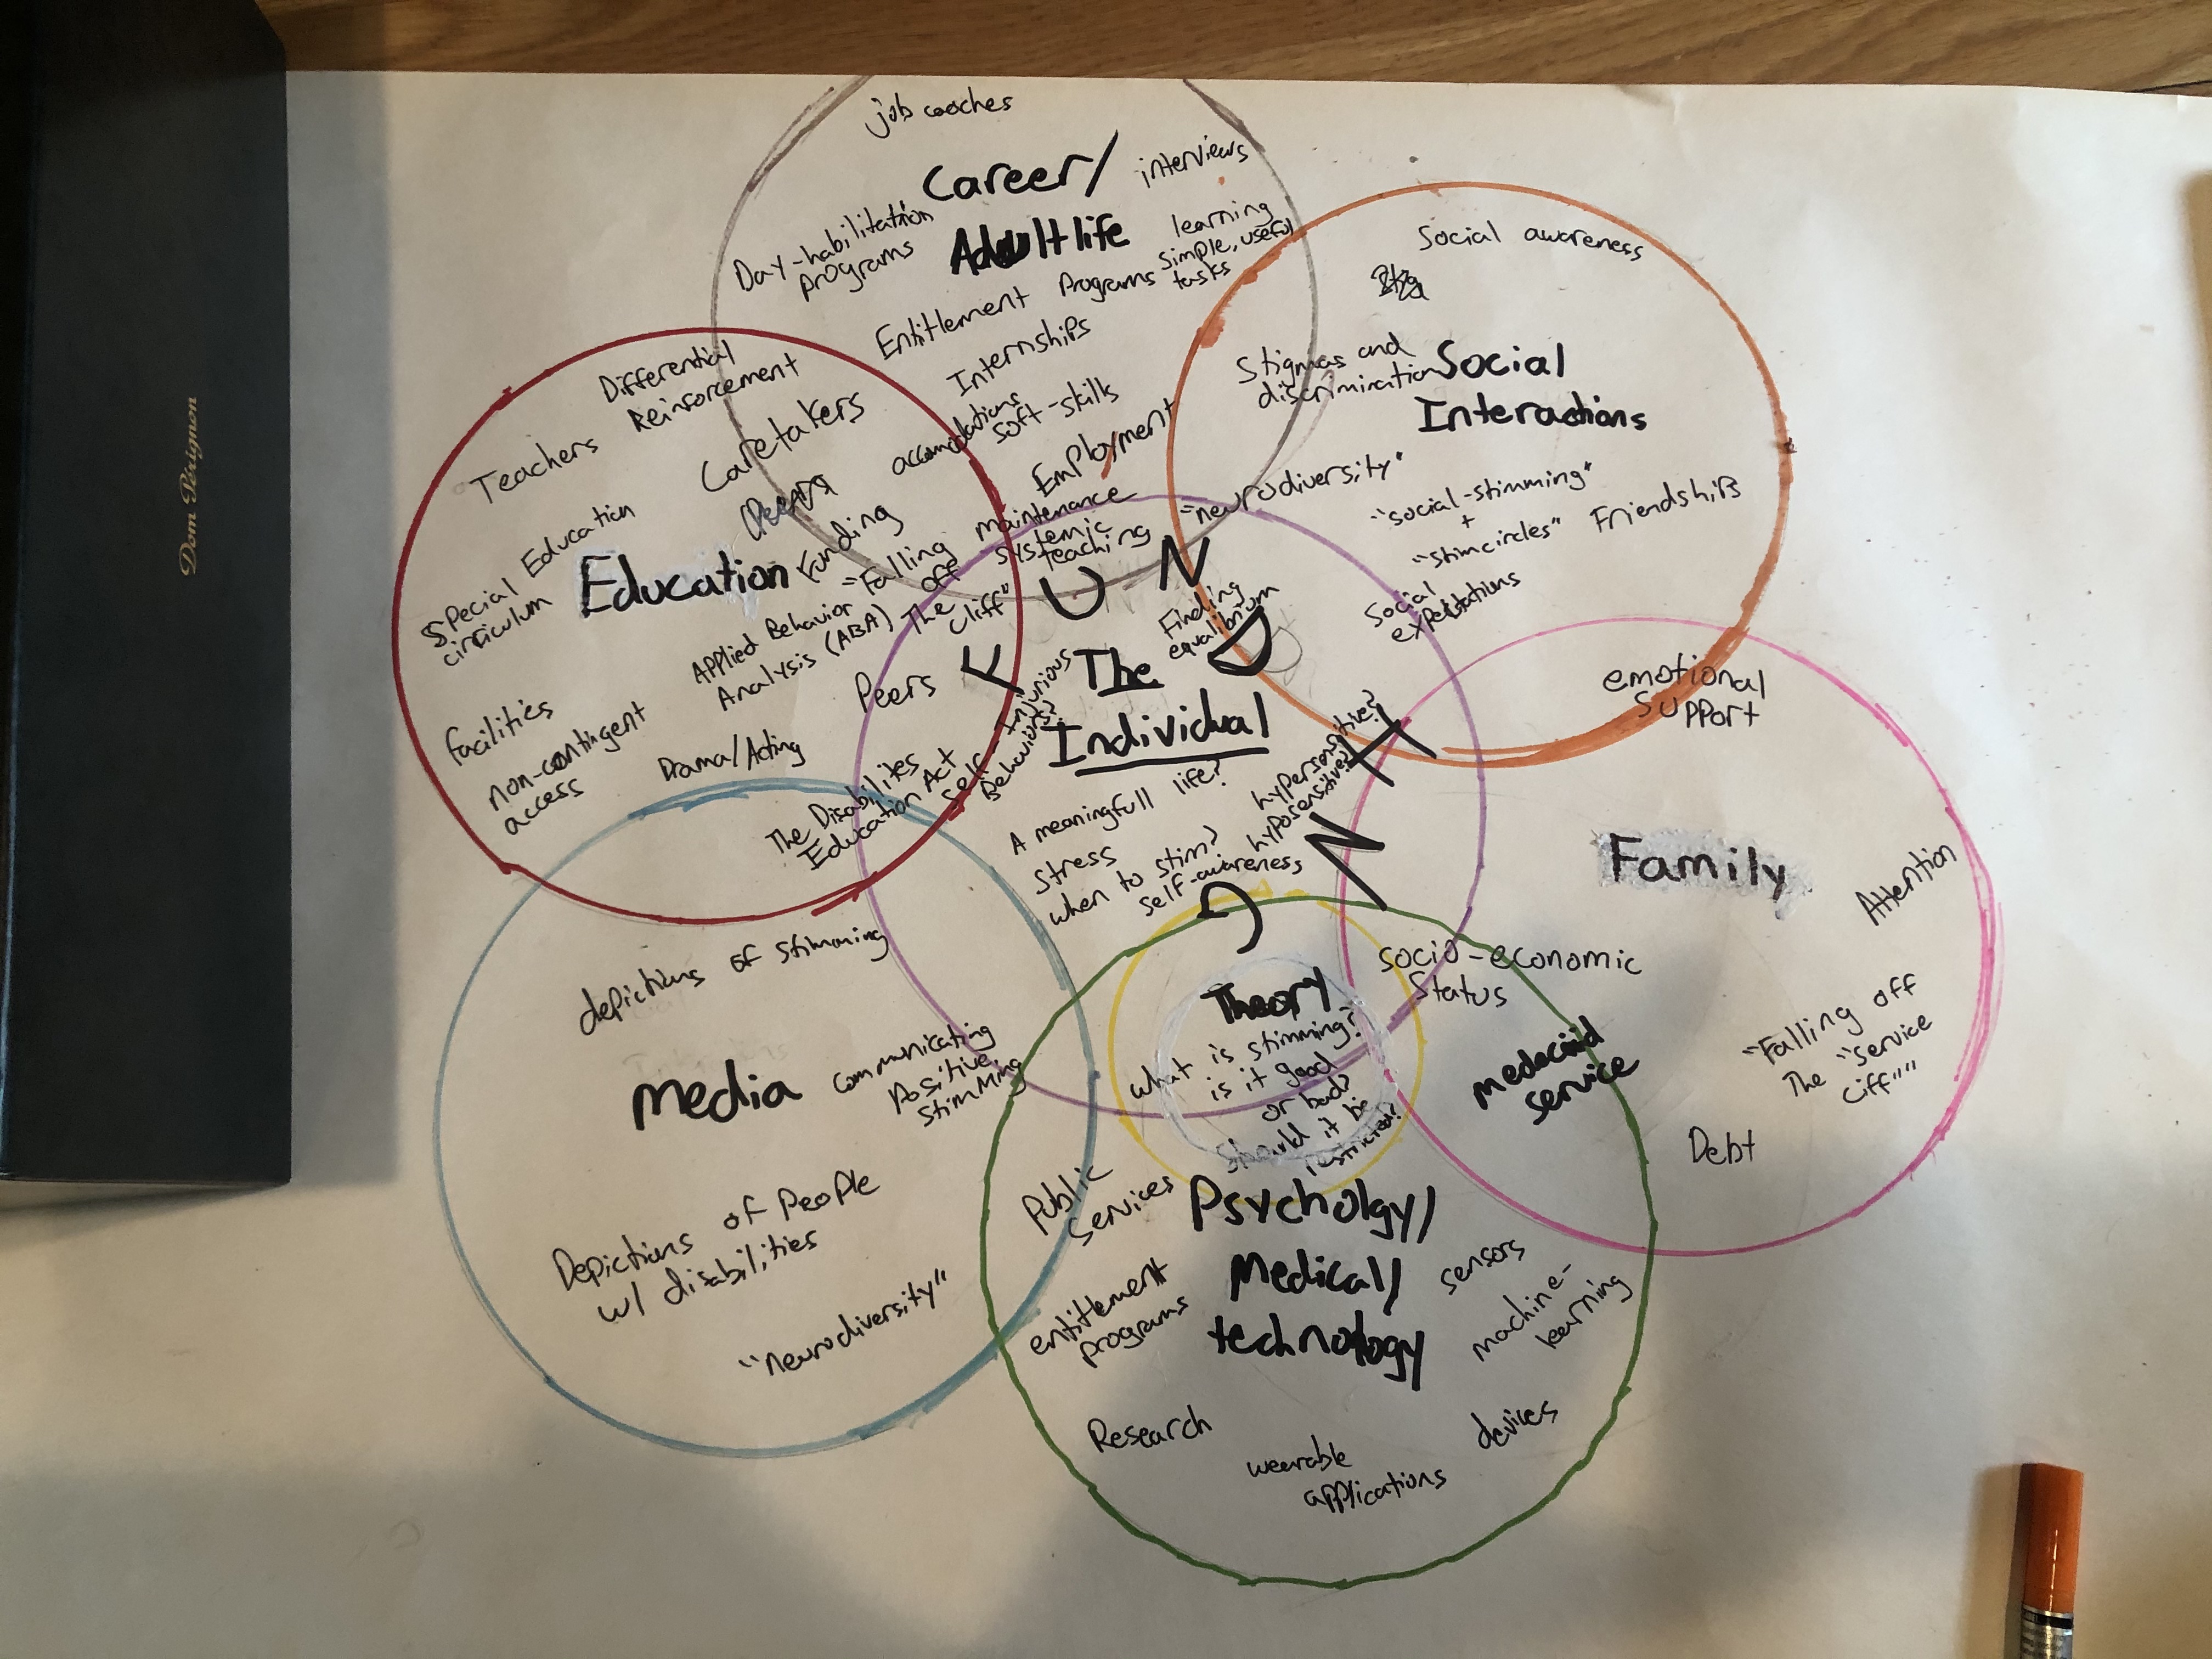 Dom Pérignon
job coaches
Career/
Adult life
interviews
Day-habilitation
programs
learning
simple, useful
tasks
Entitlement Programs
Internships
accomodations
soft-skills
Employment
maintenance
systemic
teaching
Social awareness
Stigmas and
discrimination
Social
Interactions
"neurodiversity"
"social-stimming"
+
"stimcircles"
Friendships
Social
Finding
Differential
Reinforcement
Teachers
Caretakers
Special Education
cirriculum
Education
Funding
"Falling
off
The
cliff"
Applied Behavior
Analysis (ABA)
Peers
facilities
non-contingent
access
Drama/Acting
The Disabilites
Education Act
The
Individual
self-Injurious
Behaviors?
A meaningfull life?
Stress
when to stim?
self-awareness
hypersensitive?
hyposensitive?
emotional
support
Family
Attention
socio-economic
Status
"Falling off
The "service
ciff""
Debt
medacaid
service
depictions of stimming
media
communicating
Positive
stimming
Depictions of People
w/ disabilities
"neurodiversity"
Theory
what is stimming?
is it good
or bad?
should it be
restricted?
Public
services
Psycholgy/
Medical/
technology
entitlement
programs
sensors
machine-
learning
Research
wearable
applications
devices